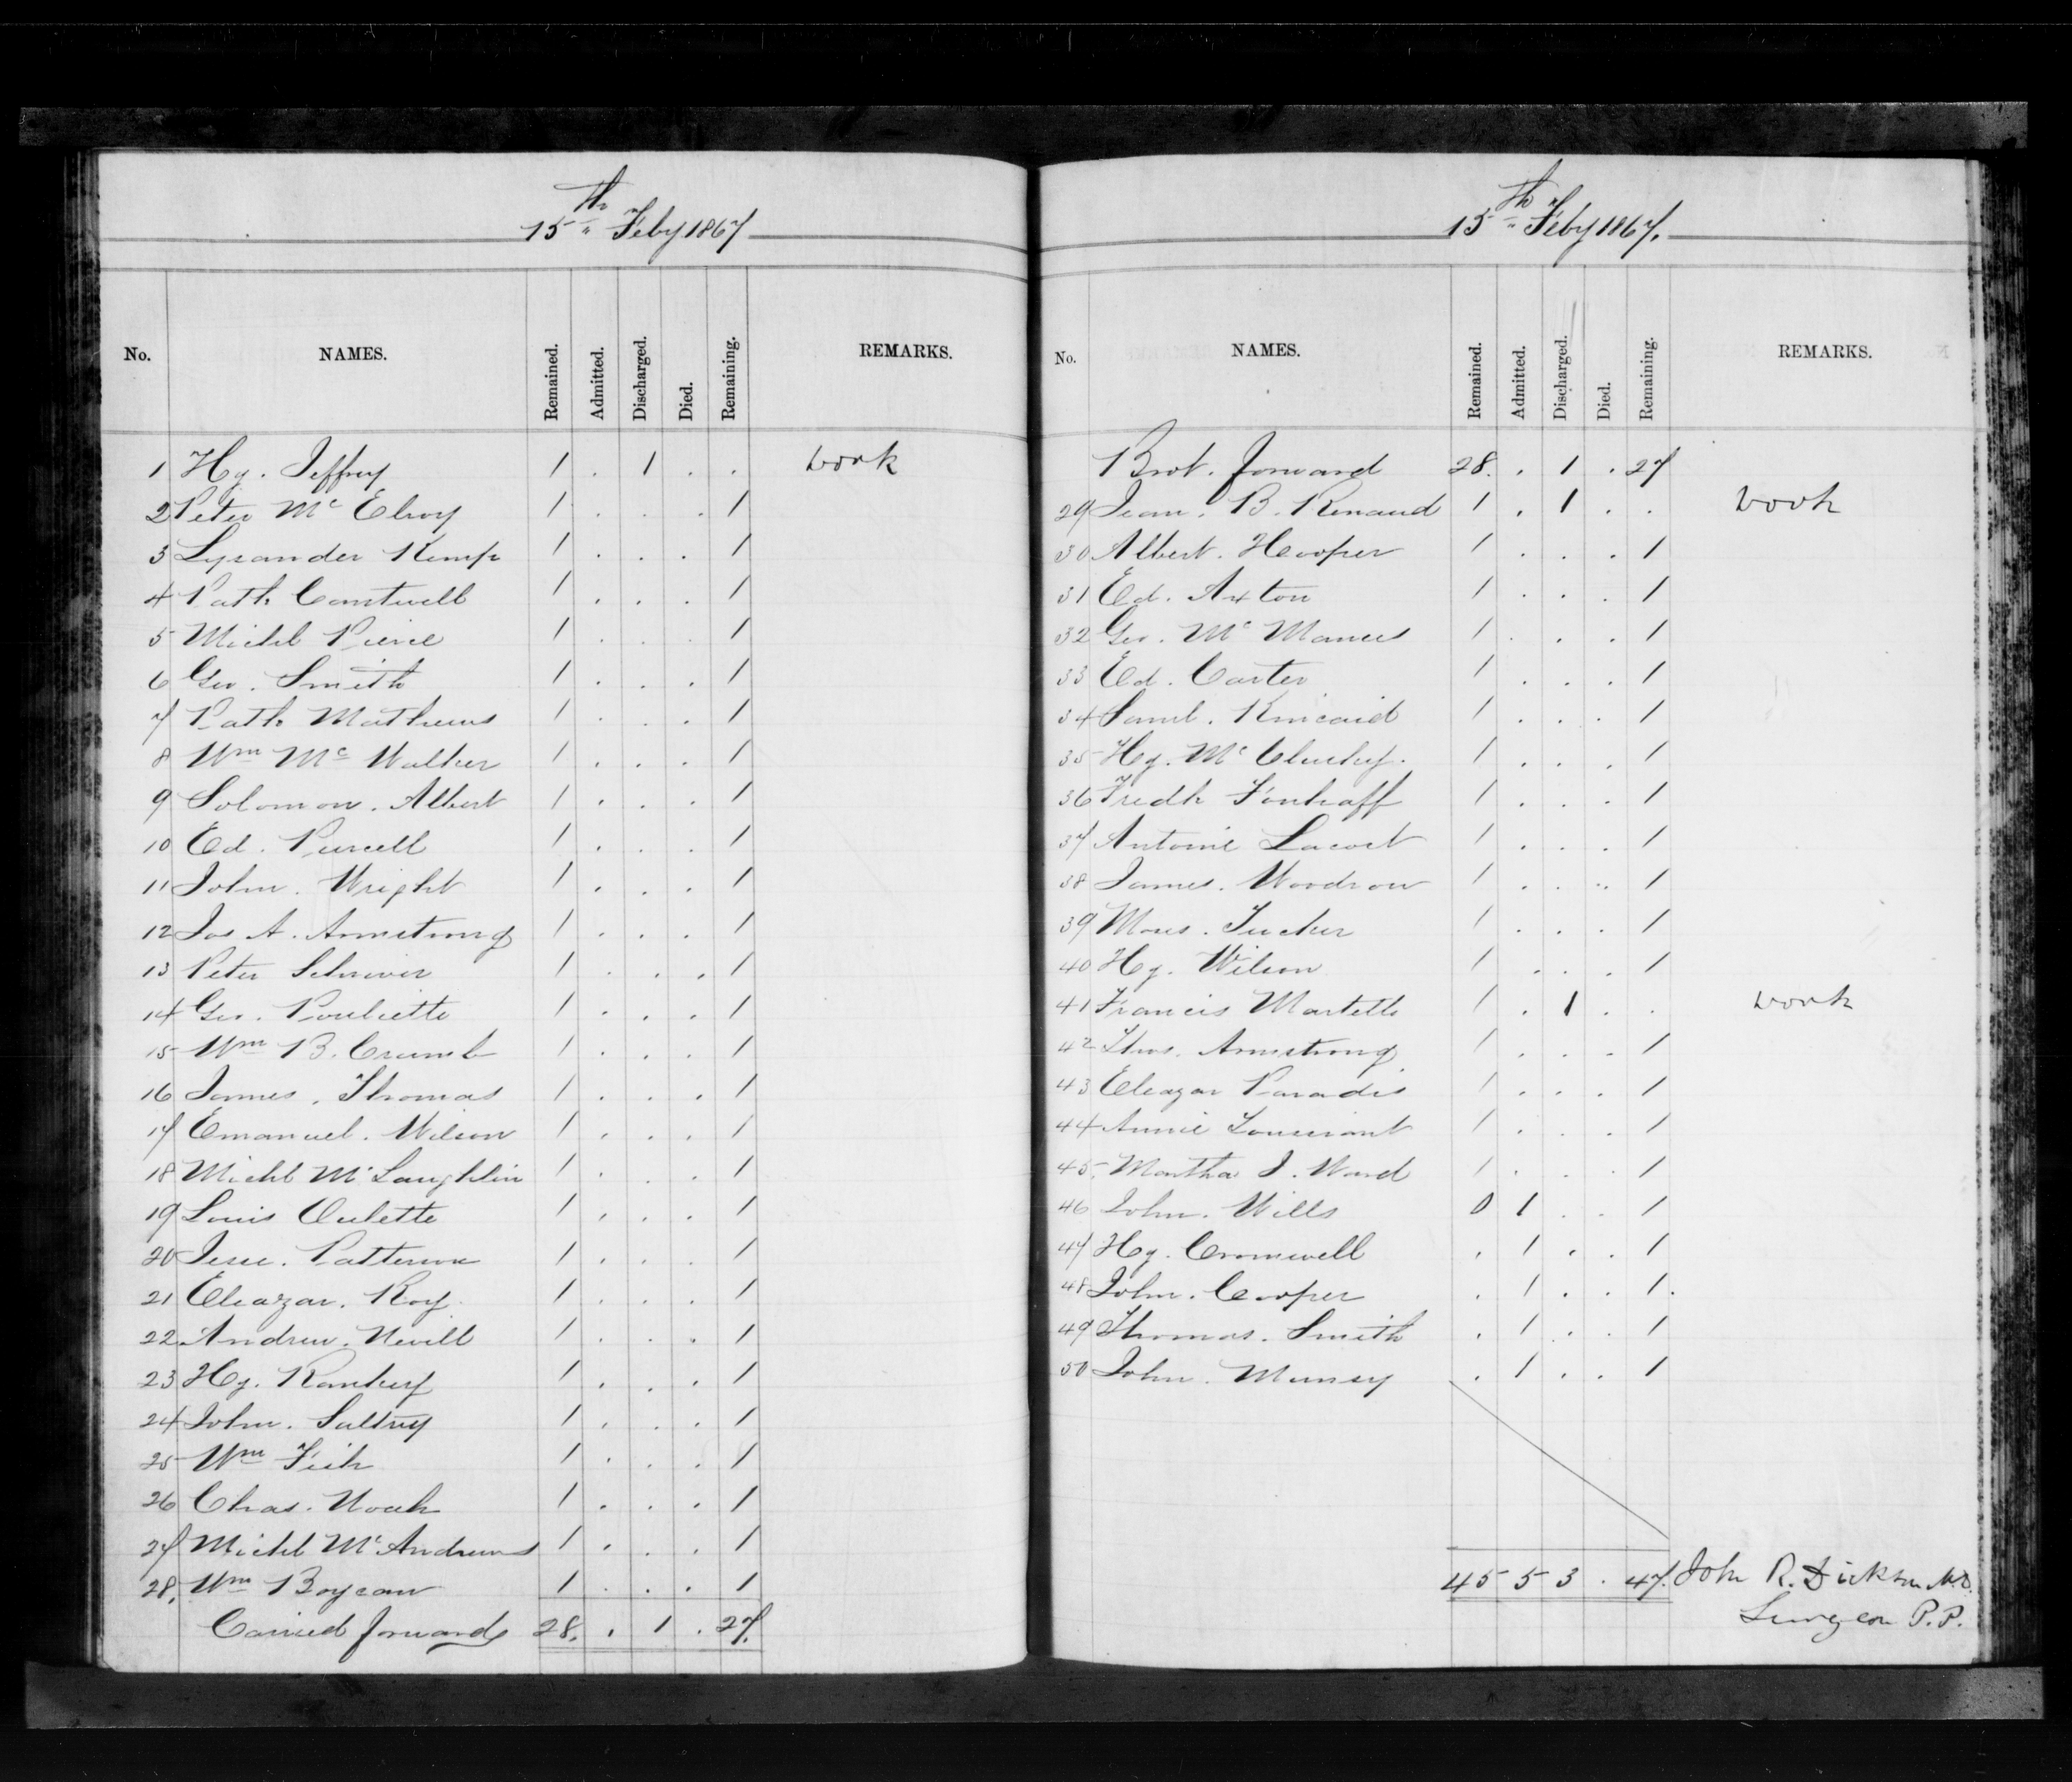 15th Feby 1867
No. NAMES. Remained. Admitted. Discharged. Died. Remaining. REMARKS.
1 Hy. Jeffrey 1 . 1 . . work
2 Peter Mc Elroy 1 . . . 1
3 Lysander Kemp 1 . . . 1
4 Patk Cantwell 1 . . . 1
5 Michl Pierce 1 . . . 1
6 Geo. Smith 1 . . . 1
7 Patk Mathews 1 . . . 1
8 Wm Mc Walker 1 . . . 1
9 Solomon. Albert 1 . . . 1
10 Ed. Purcell 1 . . . 1
11 John. Wright 1 . . . 1
12 Jas A. Armstrong 1 . . . 1
13 Peter Schriver 1 . . . 1
14 Geo. 1 . . . 1
15 Wm B. Crumb 1 . . . 1
16 James. Thomas 1 . . . 1
17 Emanuel. Wilson 1 . . . 1
18 Michl McLaughlin 1 . . . 1
19 Louis Oulette 1 . . . 1
20 Jesse. Patterson 1 . . . 1
21 Eleazar. Roy 1 . . . 1
22 Andrew. Nevill 1 . . . 1
23 Hy. Rankey 1 . . . 1
24 John. 1 . . . 1
25 Wm 1 . . . 1
26 Chas. Noah 1 . . . 1
27 Michl McAndrews 1 . . . 1
28. Wm 1 . . . 1
Carried forward 28. . 1 . 27.
15th Feby 1867.
No. NAMES. Remained. Admitted. Discharged. Died. Remaining. REMARKS.
Brot. forward 28. . 1 . 27
29 Jean. B. Renaud 1 . 1 . . work
30 Albert. Hooper 1 . . . 1
31 Ed. Axton 1 . . . 1
32 Geo. Mc Manus 1 . . . 1
33 Ed. Carter 1 . . . 1
34 Saml. Kincaid 1 . . . 1
35 Hy. Mc Cluskey. 1 . . . 1
36 Fredk 1 . . . 1
37 Antoine Lacost 1 . . . 1
38 James. Woodrow 1 . . . 1
39 Moses. Tucker 1 . . . 1
40 Hy. Wilson 1 . . . 1
41 Francis Martelle 1 . 1 . . work
42 Thos. Armstrong 1 . . . 1
43 Eleazar Paradis 1 . . . 1
44 Annie 1 . . . 1
45. Martha J. Ward 1 . . . 1
46 John. Wills 0 1 . . 1
47 Hy. Cromwell . 1 . . 1
48 John. Cooper . 1 . . 1.
49 Thomas. Smith . 1 . . 1
50 John. Munsey . 1 . . 1
45 5 3 . 47. John R. Dickson M.D.
Surgeon P.P.